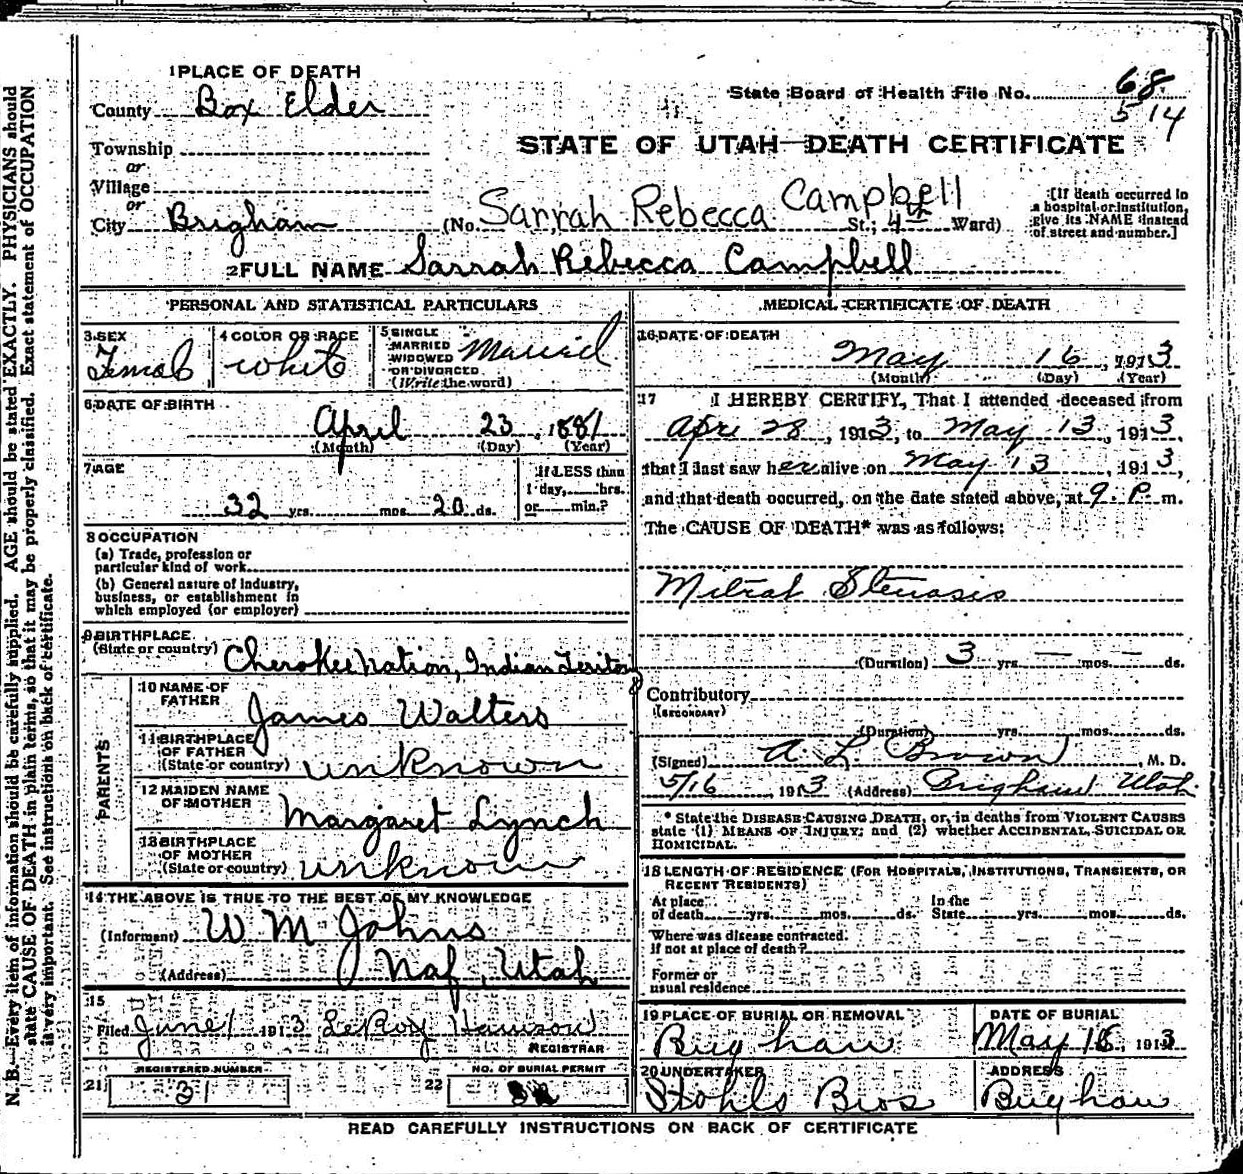 1 PLACE OF DEATH
County Box Elder
State Board of Health File No. 68
5 14
Township
or
Village
or
City Brigham
STATE OF UTAH—DEATH CERTIFICATE
(No. Sarrah Rebecca Campbell St.; 4th Ward)
[If death occurred in
a hospital or institution,
give its NAME instead
of street and number.]
2 FULL NAME Sarrah Rebecca Campbell
PERSONAL AND STATISTICAL PARTICULARS
3 SEX
Female
4 COLOR OR RACE
white
5 SINGLE
MARRIED
WIDOWED
OR DIVORCED
(Write the word)
Married
6 DATE OF BIRTH
April 23, 1881
(Month) (Day) (Year)
7 AGE
32 yrs. mos. 20 ds.
If LESS than
1 day, hrs.
or min.?
8 OCCUPATION
(a) Trade, profession or
particular kind of work
(b) General nature of industry,
business, or establishment in
which employed (or employer)
9 BIRTHPLACE
(State or country) Cherokee nation, Indian Territory
PARENTS
10 NAME OF
FATHER James Walters
11 BIRTHPLACE
OF FATHER
(State or country) unknown
12 MAIDEN NAME
OF MOTHER Margaret Lynch
13 BIRTHPLACE
OF MOTHER
(State or country) unknown
14 THE ABOVE IS TRUE TO THE BEST OF MY KNOWLEDGE
(Informant) W M Johns
(Address) Naf, Utah
15
Filed June 1 1913 LeRoy
REGISTRAR
REGISTERED NUMBER
21 31
NO. OF BURIAL PERMIT
22
MEDICAL CERTIFICATE OF DEATH
16 DATE OF DEATH
May 16, 1913
(Month) (Day) (Year)
17 I HEREBY CERTIFY, That I attended deceased from
Apri 28, 1913, to May 13, 1913,
that I last saw her alive on May 13, 1913,
and that death occurred, on the date stated above, at 9. P. m.
The CAUSE OF DEATH* was as follows:
Mitral Stenosis
(Duration) 3 yrs. — mos. — ds.
Contributory
(SECONDARY)
(Duration) yrs. mos. ds.
(Signed) A. L. Brown, M. D.
5/16, 1913 (Address) Brigham Utah.
* State the DISEASE CAUSING DEATH, or, in deaths from VIOLENT CAUSES
state (1) MEANS OF INJURY; and (2) whether ACCIDENTAL, SUICIDAL OR
HOMICIDAL.
18 LENGTH OF RESIDENCE (FOR HOSPITALS, INSTITUTIONS, TRANSIENTS, OR
RECENT RESIDENTS)
At place
of death yrs. mos. ds.
In the
State yrs. mos. ds.
Where was disease contracted
if not at place of death?
Former or
usual residence
19 PLACE OF BURIAL OR REMOVAL
Brigham
DATE OF BURIAL
May 18, 1913
20 UNDERTAKER
Stohls Bros
ADDRESS
Brigham
READ CAREFULLY INSTRUCTIONS ON BACK OF CERTIFICATE
N. B.—Every item of information should be carefully supplied. AGE should be stated EXACTLY. PHYSICIANS should
state CAUSE OF DEATH in plain terms, so that it may be properly classified. Exact statement of OCCUPATION
is very important. See instructions on back of certificate.